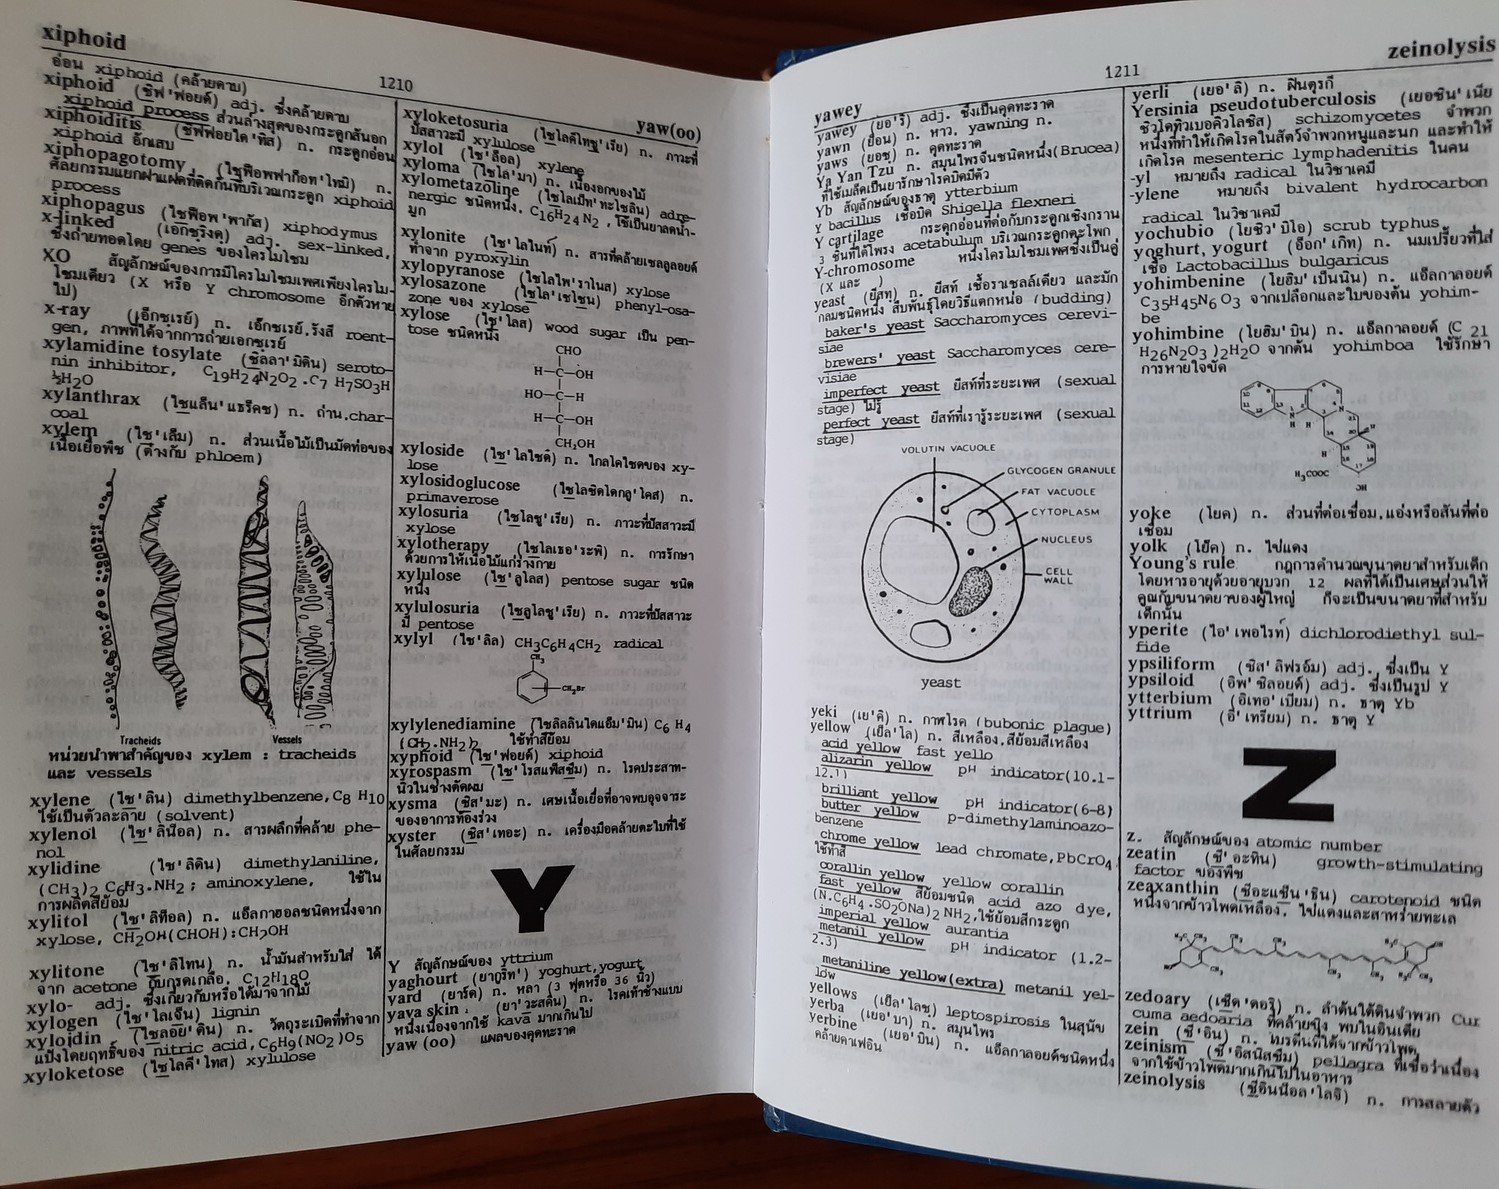 xiphoid
1210
yaw(oo)
อ่อน xiphoid (คล้ายดาบ)
xiphoid (ซิฟ'ฟอยด์) adj. ซึ่งคล้ายดาบ
xiphoid process ส่วนล่างสุดของกระดูกสันอก
xiphoiditis (ซิฟฟอยได'ทิส) n. กระดูกอ่อน
xiphoid อักเสบ
xiphopagotomy (ไซฟ็อพฟาก็อท'ไทมิ) n.
ศัลยกรรมแยกฝาแฝดที่ติดกันที่บริเวณกระดูก xiphoid
process
xiphopagus (ไซฟ็อพ'พากัส) xiphodymus
x-linked (เอกซฺริงคฺ) adj. sex-linked,
ซึ่งถ่ายทอดโดย genes ของโครโมโซม
XO สัญลักษณ์ของการมีโครโมโซมเพศเพียงโครโม-
โซมเดียว (X หรือ Y chromosome อีกตัวหาย
ไป)
x-ray (เอ็กซเรย์) n. เอ็กซเรย์, รังสี roent-
gen, ภาพที่ได้จากการถ่ายเอกซเรย์
xylamidine tosylate (ซิลลา'มิดิน) seroto-
nin inhibitor, C19H24N2O2.C7 H7SO3H
½H2O
xylanthrax (ไซแล็น'แธร็คซ) n. ถ่าน.char-
coal
xylem (ไซ'เล็ม) n. ส่วนเนื้อไม้เป็นมัดท่อของ
เนื้อเยื่อพืช (ต่างกับ phloem)
Tracheids
Vessels
หน่วยนำพาสำคัญของ xylem : tracheids
และ vessels
xylene (ไซ'ลีน) dimethylbenzene,C8 H10
ใช้เป็นตัวละลาย (solvent)
xylenol (ไซ'ลีน็อล) n. สารผลึกที่คล้าย phe-
nol
xylidine (ไซ'ลิดิน) dimethylaniline,
(CH3)2 C6H3.NH2; aminoxylene, ใช้ใน
การผลิตสีย้อม
xylitol (ไซ'ลิท็อล) n. แอ็ลกาฮอลชนิดหนึ่งจาก
xylose, CH2OH(CHOH):CH2OH
xylitone (ไซ'ลิโทน) n. น้ำมันสำหรับใส่ ได้
จาก acetone กับกรดเกลือ, C12H18O
xylo- adj. ซึ่งเกี่ยวกับหรือได้มาจากไม้
xylogen (ไซ'โลเจ็น) lignin
xyloidin (ไซลอย'ดิน) n. วัตถุระเบิดที่ทำจาก
แป้งโดยฤทธิ์ของ nitric acid,C6H9(NO2)O5
xyloketose (ไซโลคี'โทส) xylulose
xyloketosuria (ไซโลคีโทซฺู'เรีย) n. ภาวะที่
ปัสสาวะมี xylulose
xylol (ไซ'ล็อล) xylene
xyloma (ไซโล'มา) n. เนื้องอกของไม้
xylometazoline (ไซโลเม็ท'ทะโซลิน) adre-
nergic ชนิดหนึ่ง, C16H24 N2 , ใช้เป็นยาลดน้ำ-
มูก
xylonite (ไซ'โลไนท์) n. สารที่คล้ายเซลลูลอยด์
ทำจาก pyroxylin
xylopyranose (ไซโลไพ'ราโนส) xylose
xylosazone (ไซโล'เซโซน) phenyl-osa-
zone ของ xylose
xylose (ไซ'โลส) wood sugar เป็น pen-
tose ชนิดหนึ่ง
CHO
H—C—OH
HO—C—H
H—C—OH
CH2OH
xyloside (ไซ'โลไซด์) n. ไกลโคไซดของ xy-
lose
xylosidoglucose (ไซโลซิดไดกลู'โคส) n.
primaverose
xylosuria (ไซโลซู'เรีย) n. ภาวะที่ปัสสาวะมี
xylose
xylotherapy (ไซโลเธอ'ระพี) n. การรักษา
ด้วยการให้เนื้อไม้แก่ร่างกาย
xylulose (ไซ'ลูโลส) pentose sugar ชนิด
หนึ่ง
xylulosuria (ไซลูโลซู'เรีย) n. ภาวะที่ปัสสาวะ
มี pentose
xylyl (ไซ'ลิล) CH3C6H4CH2 radical
CH3
CH2Br
xylylenediamine (ไซลิลลินไดแอ็ม'มีน) C6 H4
(CH2.NH2)2 ใช้ทำสีย้อม
xyphoid (ไซ'ฟอยด์) xiphoid
xyrospasm (ไซ'โรสแพ็สซึม) n. โรคประสาท-
นิ้วในช่างตัดผม
xysma (ซิส'มะ) n. เศษเนื้อเยื่อที่อาจพบอุจจาระ
ของอาการท้องร่วง
xyster (ซิส'เทอะ) n. เครื่องมือคล้ายตะไบที่ใช้
ในศัลยกรรม
Y
Y สัญลักษณ์ของ yttrium
yaghourt (ยากูร์ท') yoghurt,yogurt
yard (ยาร์ด) n. หลา (3 ฟุตหรือ 36 นิ้ว)
yava skin (ยา'วะสคิน) n. โรคเท้าช้างแบบ
หนึ่งเนื่องจากใช้ kava มากเกินไป
yaw (oo) แผลของคุดทะราด
1211
zeinolysis
yawey
yawey (ยอ'รี) adj. ซึ่งเป็นคุดทะราด
yawn (ย็อน) n. หาว, yawning n.
yaws (ยอซฺ) n. คุดทะราด
Ya Yan Tzu n. สมุนไพรจีนชนิดหนึ่ง(Brucea)
ที่ใช้เมล็ดเป็นยารักษาโรคบิดมีตัว
Yb สัญลักษณ์ของธาตุ ytterbium
Y bacillus เชื้อบิด Shigella flexneri
Y cartilage กระดูกอ่อนที่ต่อกับกระดูกเชิงกราน
3 ชิ้นที่ได้โพรง acetabulum บริเวณกระดูกตะโพก
Y-chromosome หนึ่งโครโมโซมเพศซึ่งเป็นคู่
(X และ )
yeast (ยีสทฺ) n. ยีสท์ เชื้อราเซลล์เดียว และมัก
กลมชนิดหนึ่ง สืบพันธุ์โดยวิธีแตกหน่อ (budding)
baker's yeast Saccharomyces cerevi-
siae
brewers' yeast Saccharomyces cere-
visiae
imperfect yeast ยีสท์ที่ระยะเพศ (sexual
stage) ไม่รู้
perfect yeast ยีสท์ที่เรารู้ระยะเพศ (sexual
stage)
VOLUTIN VACUOLE
GLYCOGEN GRANULE
FAT VACUOLE
CYTOPLASM
NUCLEUS
CELL
WALL
yeast
yeki (เย'คิ) n. กาฬโรค (bubonic plague)
yellow (เย็ล'โล) n. สีเหลือง,สีย้อมสีเหลือง
acid yellow fast yello
alizarin yellow pH indicator(10.1-
12.1)
brilliant yellow pH indicator(6-8)
butter yellow p-dimethylaminoazo-
benzene
chrome yellow lead chromate,PbCrO4
ใช้ทำสี
corallin yellow yellow corallin
fast yellow สีย้อมชนิด acid azo dye,
(N.C6H4.SO2ONa)2 NH2,ใช้ย้อมสีกระดูก
imperial yellow aurantia
metanil yellow pH indicator (1.2-
2.3)
metaniline yellow(extra) metanil yel-
low
yellows (เย็ล'โลซฺ) leptospirosis ในสุนัข
yerba (เยอ'บา) n. สมุนไพร
yerbine (เยอ'บีน) n. แอ็ลกาลอยด์ชนิดหนึ่ง
คล้ายคาเฟอีน
yerli (เยอ'ลิ) n. ฝิ่นตุรกี
Yersinia pseudotuberculosis (เยอซิน'เนีย
ซิวโดทิวเบอคิวโลซิส) schizomycetes จำพวก
หนึ่งที่ทำให้เกิดโรคในสัตว์จำพวกหนูและนก และทำให้
เกิดโรค mesenteric lymphadenitis ในคน
-yl หมายถึง radical ในวิชาเคมี
-ylene หมายถึง bivalent hydrocarbon
radical ในวิชาเคมี
yochubio (โยชิว'บิโอ) scrub typhus
yoghurt, yogurt (อ็อก'เกิท) n. นมเปรี้ยวที่ใส่
เชื้อ Lactobacillus bulgaricus
yohimbenine (โยฮิม'เบ็นนีน) n. แอ็ลกาลอยด์
C35H45N6O3 จากเปลือกและใบของต้น yohim-
be
yohimbine (โยฮิม'บีน) n. แอ็ลกาลอยด์ (C 21
H26N2O3)2H2O จากต้น yohimboa ใช้รักษา
การหายใจขัด
H3COOC
OH
yoke (โยค) n. ส่วนที่ต่อเชื่อม,แอ่งหรือสันที่ต่อ
เชื่อม
yolk (โย็ค) n. ไข่แดง
Young's rule กฎการคำนวณขนาดยาสำหรับเด็ก
โดยหารอายุด้วยอายุบวก 12 ผลที่ได้เป็นเศษส่วนให้
คูณกับขนาดยาของผู้ใหญ่ ก็จะเป็นขนาดยาที่สำหรับ
เด็กนั้น
yperite (ไอ'เพอไรท์) dichlorodiethyl sul-
fide
ypsiliform (ซิส'ลิฟรอ์ม) adj. ซึ่งเป็น Y
ypsiloid (อิพ'ซิลอยด์) adj. ซึ่งเป็นรูป Y
ytterbium (อิเทอ'เบียม) n. ธาตุ Yb
yttrium (อี'เทรียม) n. ธาตุ Y
Z
z. สัญลักษณ์ของ atomic number
zeatin (ซี'อะทิน) growth-stimulating
factor ของพืช
zeaxanthin (ซีอะแซ็น'ธิน) carotenoid ชนิด
หนึ่งจากข้าวโพดเหลือง, ไข่แดงและสาหร่ายทะเล
zedoary (เซ็ด'ดอรี) n. ลำต้นใต้ดินจำพวก Cur
cuma aedoaria ที่คล้ายขิง พบในอินเดีย
zein (ซี'อิน) n. โปรตีนที่ได้จากข้าวโพด
zeinism (ซี'อีสนิสซึม) pellagra ที่เชื่อว่าเนื่อง
จากใช้ข้าวโพดมากเกินไปในอาหาร
zeinolysis (ซีอินน็อล'ไลซิ) n. การสลายตัว